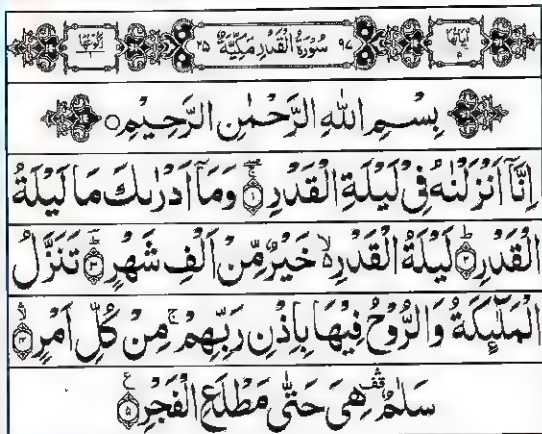 اٰيَاتُهَا ٥ ٩٧ سُوْرَةُ الْقَدْرِ مَكِّيَّةٌ ٢٥ رُكُوْعُهَا ١
بِسْمِ اللهِ الرَّحْمٰنِ الرَّحِيْمِ
اِنَّآ اَنْزَلْنٰهُ فِيْ لَيْلَةِ الْقَدْرِ ۝١ وَمَآ اَدْرٰىكَ مَا لَيْلَةُ
الْقَدْرِ ۝٢ؕ لَيْلَةُ الْقَدْرِ ۙ خَيْرٌ مِّنْ اَلْفِ شَهْرٍ ۝٣ؕ تَنَزَّلُ
الْمَلٰٓئِكَةُ وَالرُّوْحُ فِيْهَا بِاِذْنِ رَبِّهِمْ ۚ مِنْ كُلِّ اَمْرٍ ۝٤ۙ
سَلٰمٌ ۛ هِيَ حَتّٰى مَطْلَعِ الْفَجْرِ ۝٥